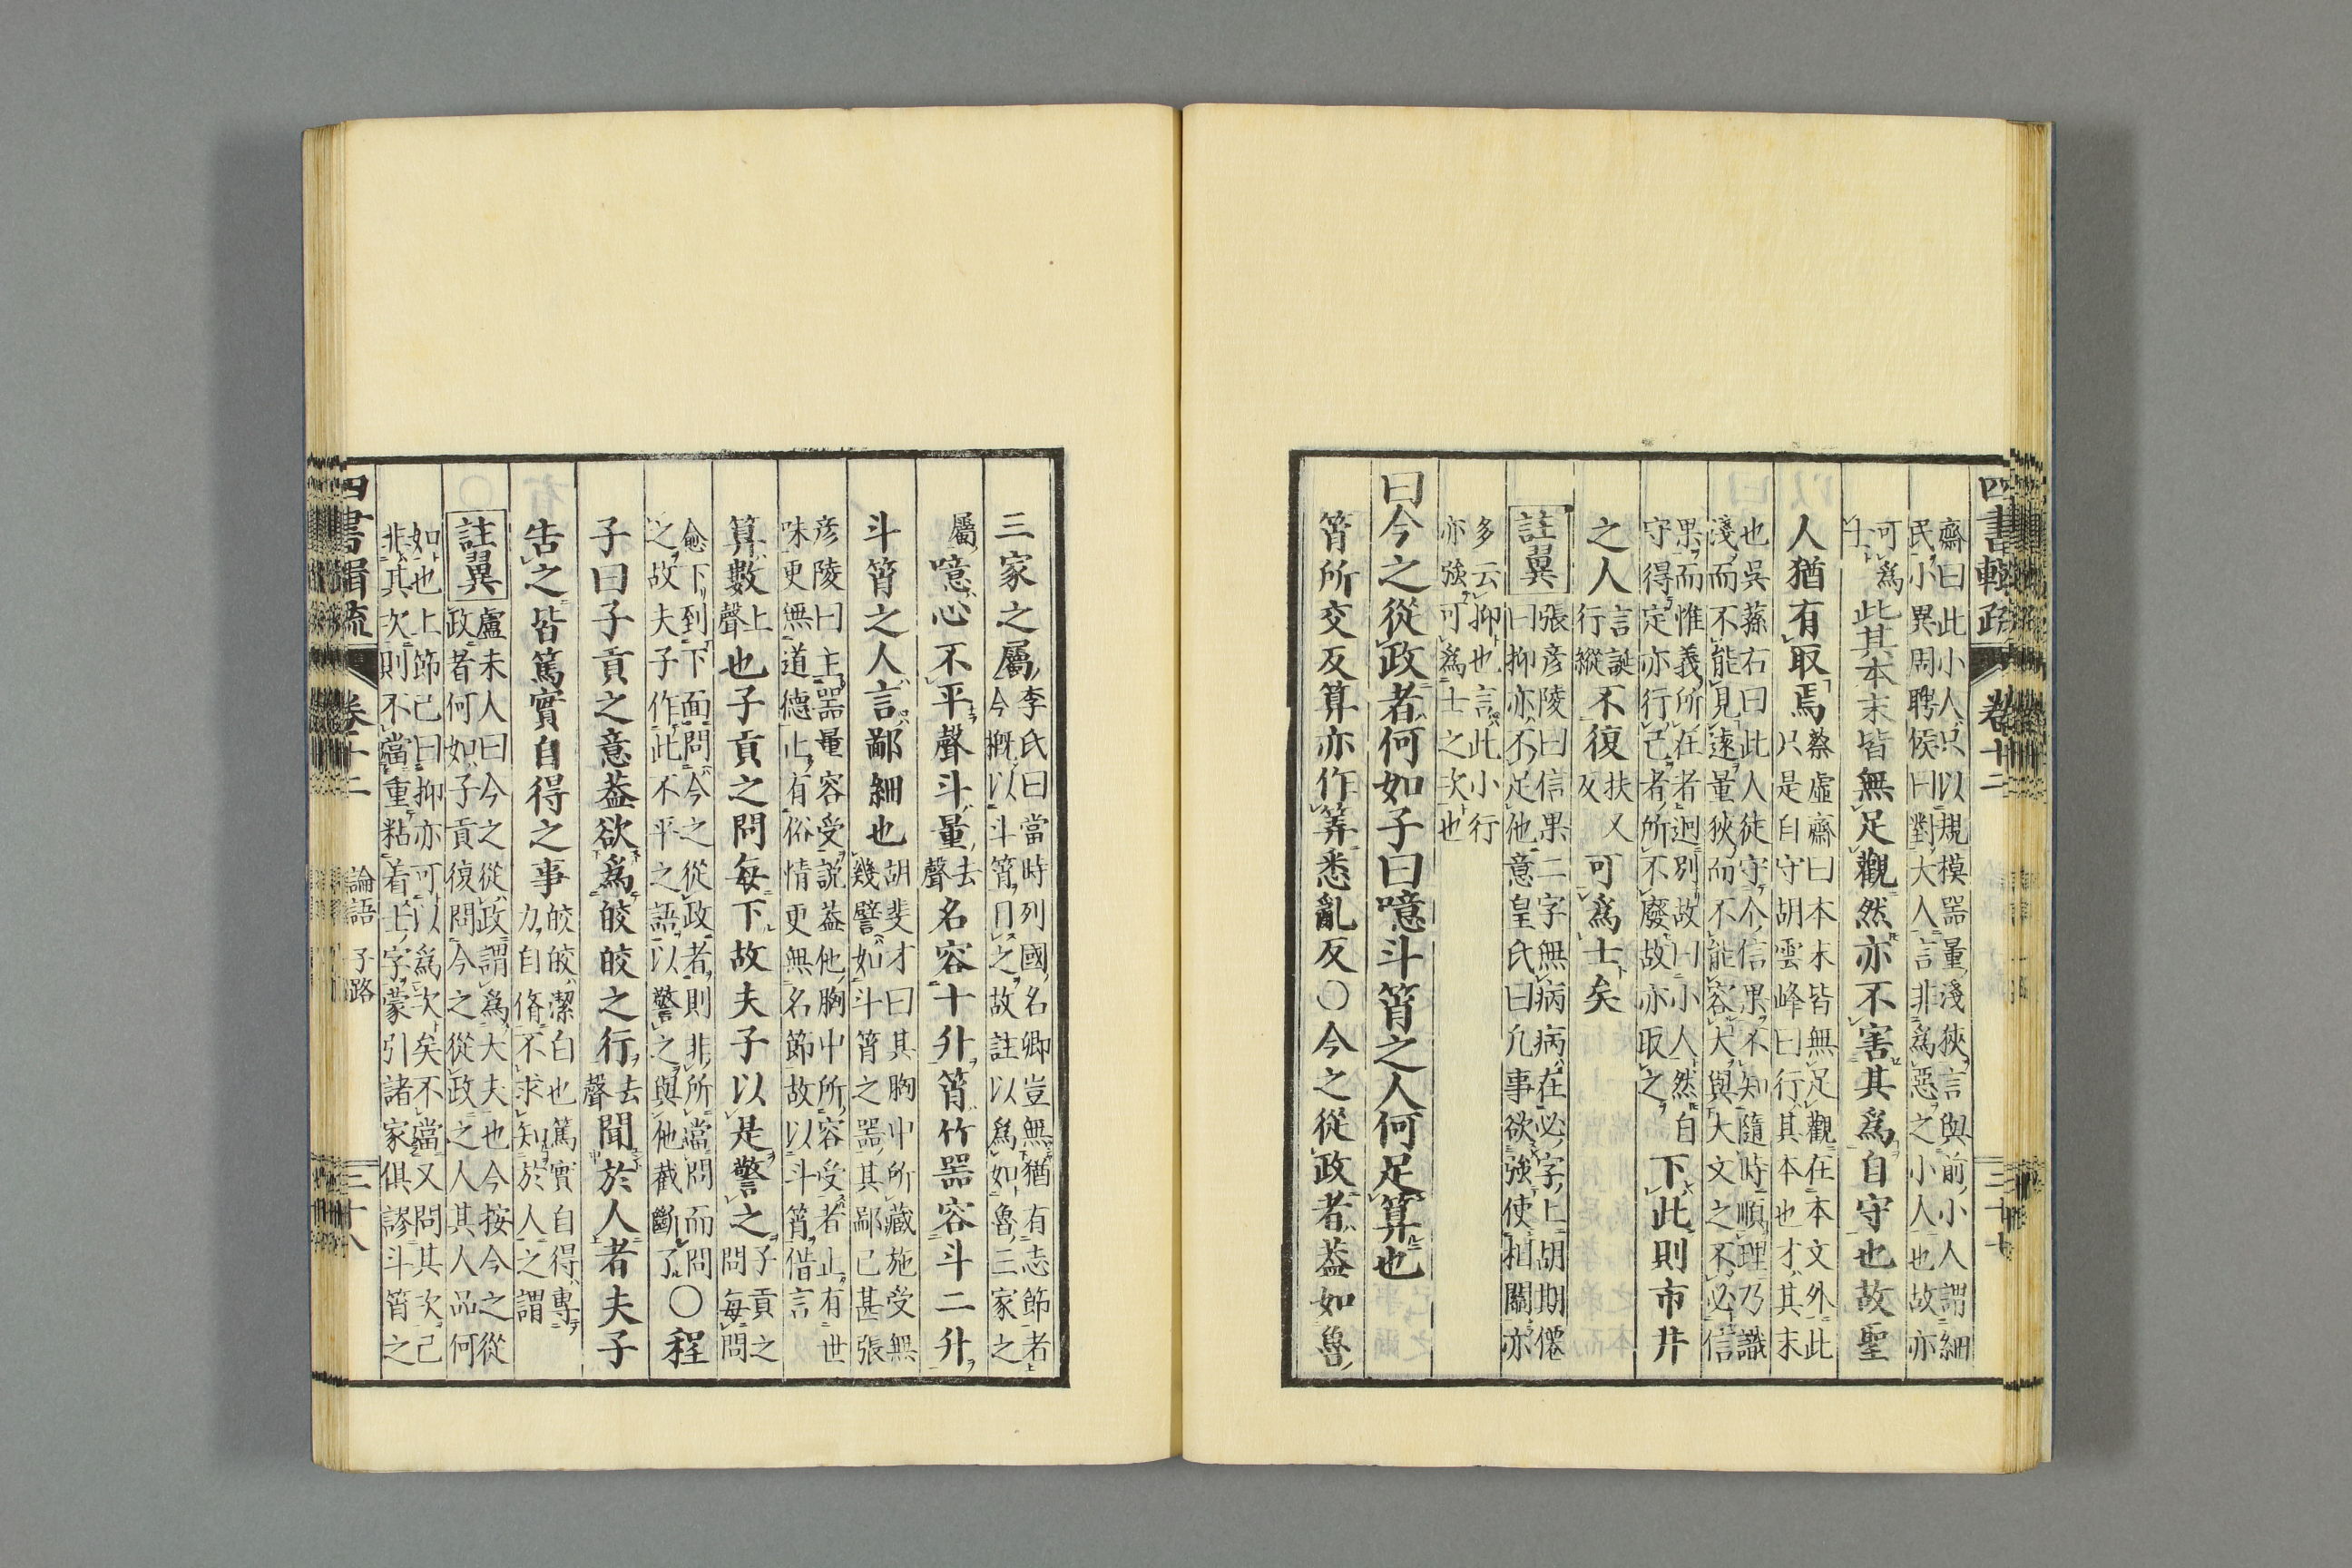 四書輯疏 卷十二 三十七
齋曰此小人只以規模噐量淺狹言與前小人謂細
民小異周聘侯曰對大人言非為惡之小人也故亦
可爲
士
此其本末皆無足觀然亦不害其爲自守也故聖
人猶有取焉
蔡虛齋曰本末皆無足觀在本文外此
只是自守胡雲峰曰行其本也才其末
也吳蓀右曰此人徒守介信果不知隨時順理乃識
淺而不能見遠量狹而不能容大與大文之不必信
果而惟義所在者迥別故曰小人然自
守得定亦行己者所不廢故亦取之
下此則市井
之人
言誕
行縱
不復
扶又
反
可爲士矣
註翼
張彦陵曰信果二字無病病在必字上胡期僊
曰抑亦不足他意皇氏曰凢事欲強使相關亦
多云抑也言此小行
亦強可爲士之次也
曰今之從政者何如子曰噫斗筲之人何足算也
筲所交反算亦作筭悉亂反〇今之從政者葢如魯
三家之屬
李氏曰當時列國名卿豈無猶有志節者
今概以斗筲目之故註以爲如魯三家之
屬
噫心不平聲斗量
去
聲
名容十升筲竹噐容斗二升
斗筲之人言鄙細也
胡斐才曰其胸中所藏施受無
幾譬如斗筲之噐其鄙已甚張
彦陵曰主噐量容受說葢他胸中所容受者止有世
味更無道德止有俗情更無名節故以斗筲借言
算數
上
聲
也子貢之問每下故夫子以是警之
子貢之
問每問
愈下到下面問今之從政者則非所當問而問
之故夫子作此不平之語以警之與他截斷了
〇程
子曰子貢之意葢欲爲皎皎之行
去
聲
聞於人者夫子
告之皆篤實自得之事
皎皎潔白也篤實自得專
力自脩不求知於人之謂
註翼
盧未人曰今之從政謂爲大夫也今按今之從
政者何如子貢復問今之從政之人其人品何
如也上節己曰抑亦可以爲次矣不當又問其次己
非其次則不當重粘着士字蒙引諸家俱謬斗筲之
四書輯疏 卷十二 論語 子路 三十八